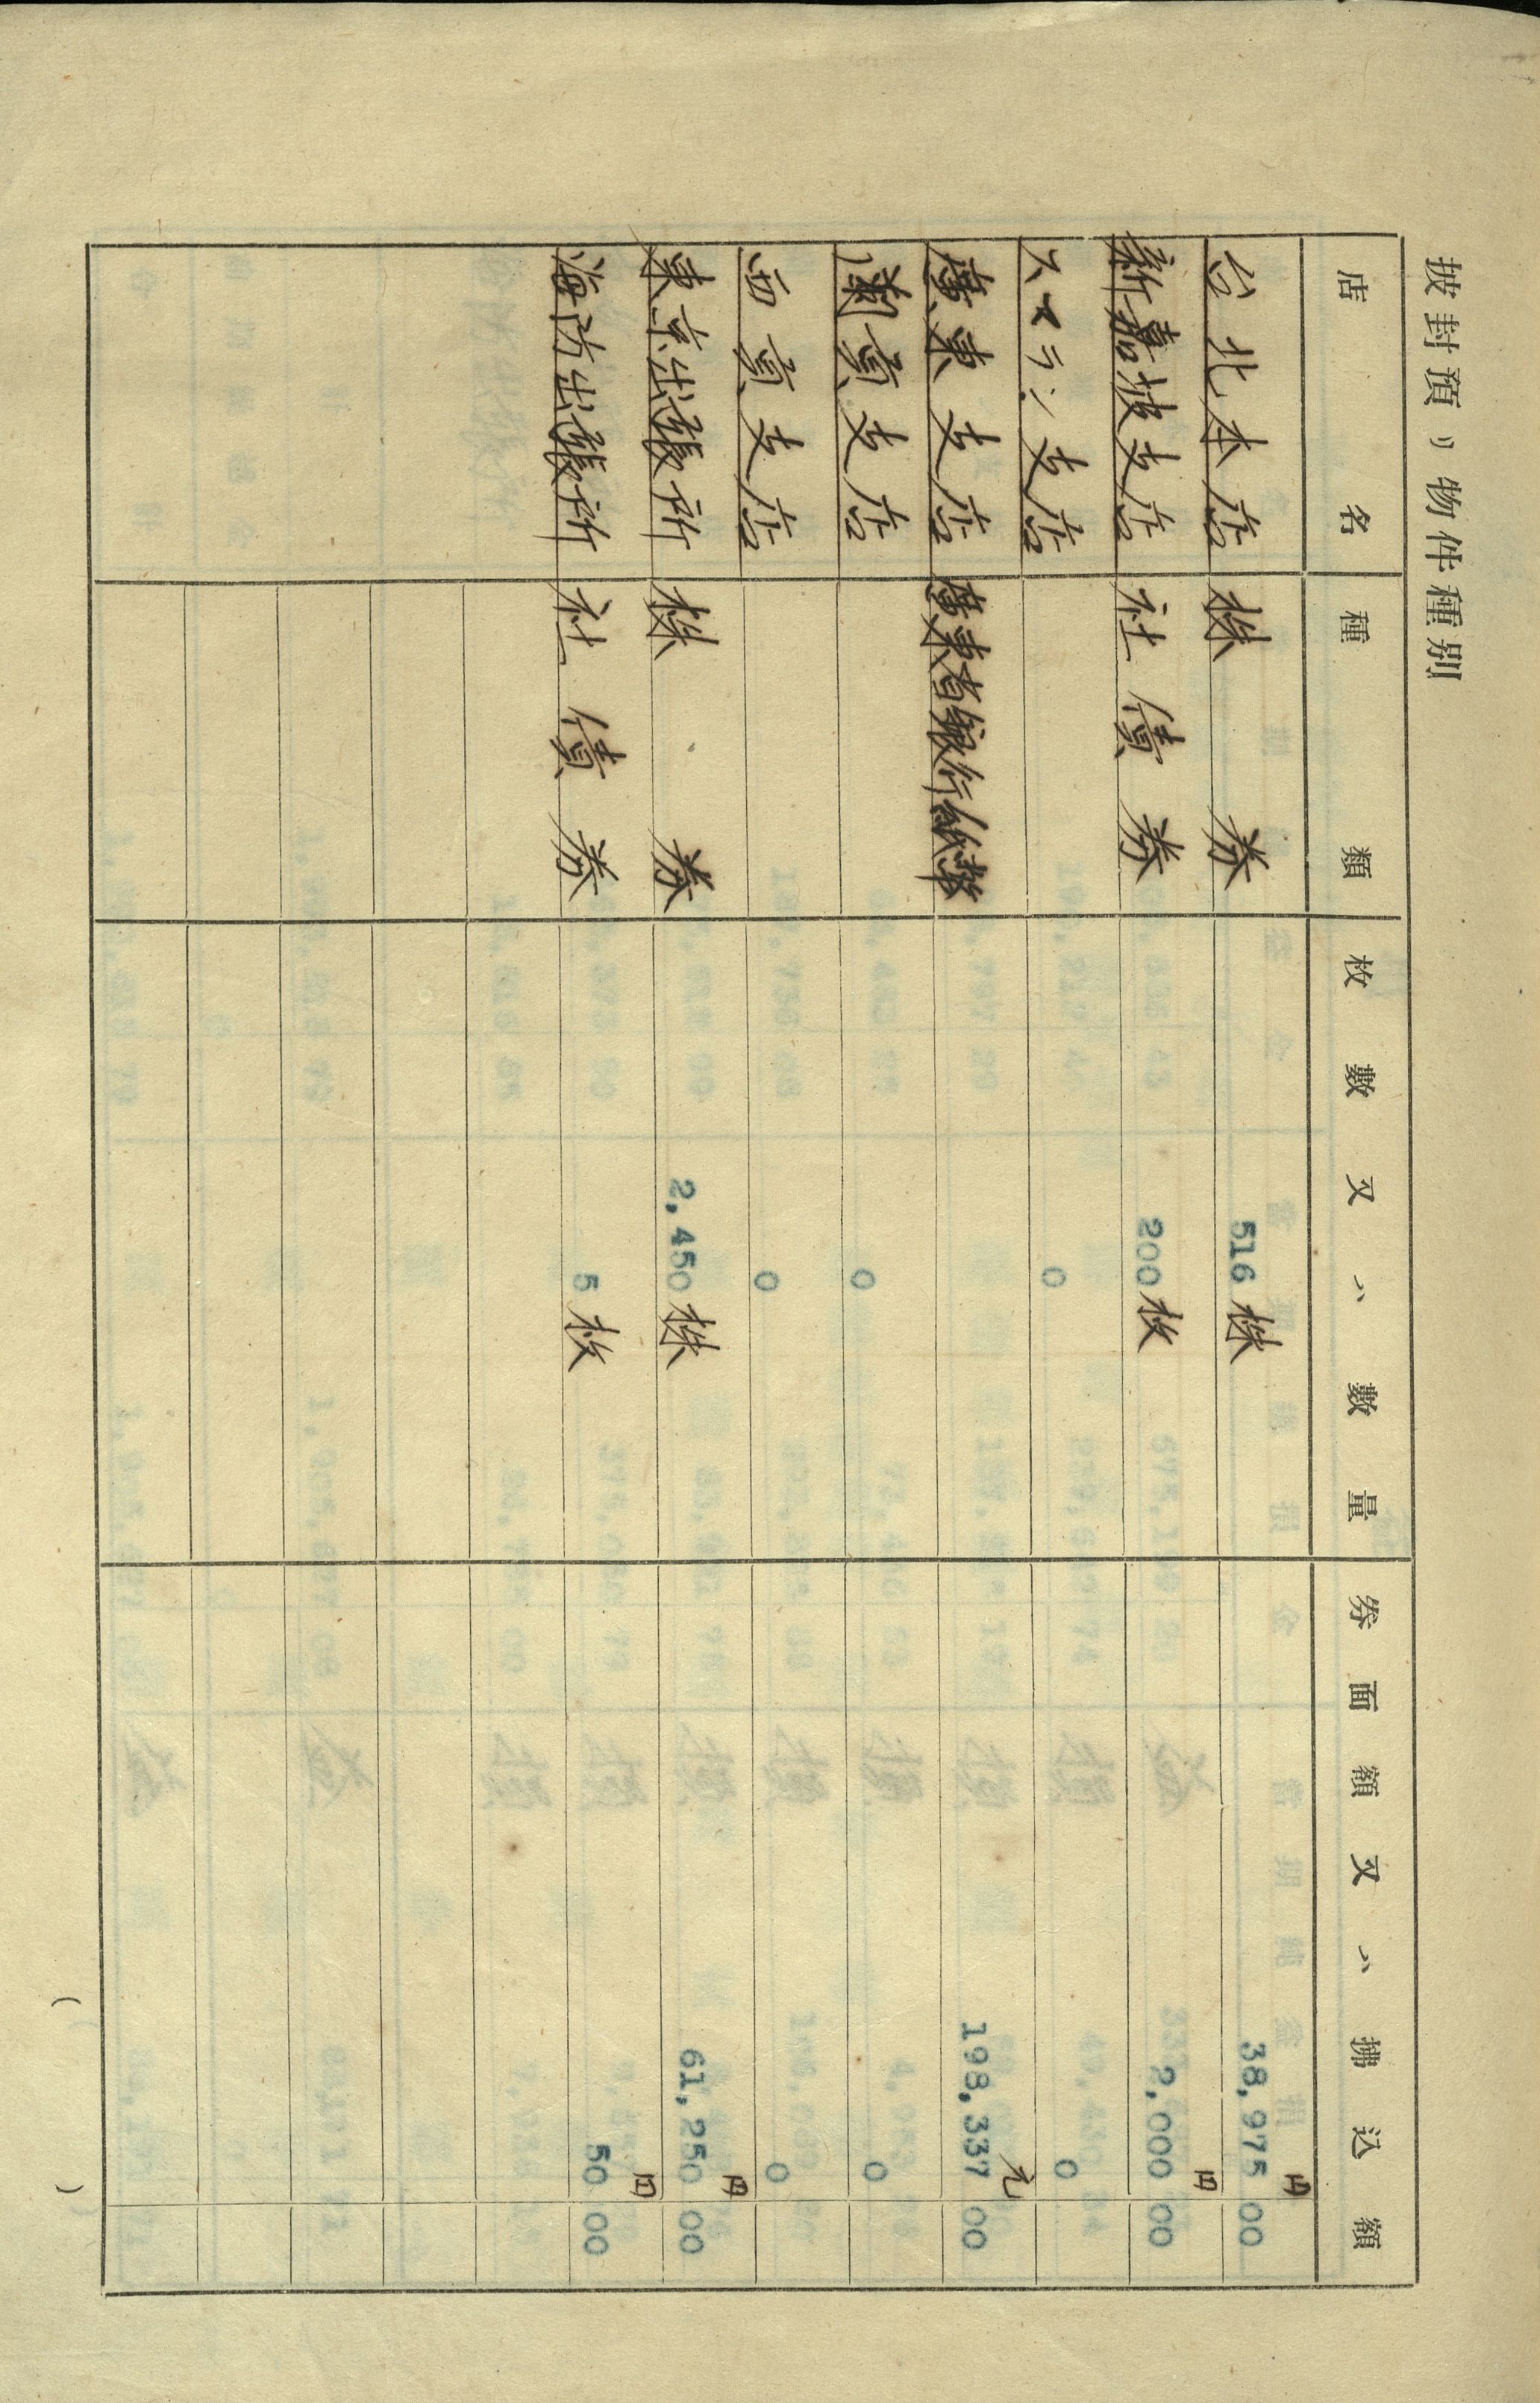 披封預リ物件種別
店名 種類 枚數又ハ數量 券面額又ハ拂込額
台北本店 株券 516株 38,975円00
新嘉坡支店 社債券 200枚 2,000円00
スマラン支店 0 0
廣東支店 廣東省銀行紙幣 198,337元00
蘭貢支店 0 0
西貢支店 0 0
東京出張所 株券 2,450株 61,250円00
海防出張所 社債券 5枚 50円00
( )